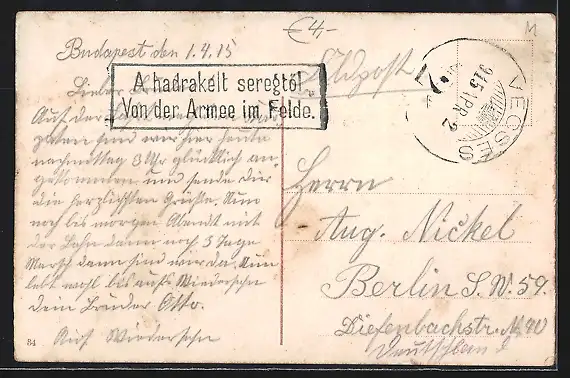 €4,-
M
Budapest den 1.4.15
Feldpost
A hadrakelt seregtől.
Von der Armee im Felde.
VECSÉS
915 APR 2
Lieber
Auf der
sind wir hier heute
nachmittag 3 Uhr glücklich an-
gekommen und sende dir
die herzlichsten Grüße. Nun
noch bis morgen Abend mit
der Bahn dann noch 3 Tage
Marsch dann sind wir da. Nun
lebt wohl bis aufs Wiedersehn
dein Bruder Otto.
Auf Wiedersehn
84
Herrn
Aug. Nickel
Berlin S.W. 59.
Diefenbachstr. N. 40
Deutschland